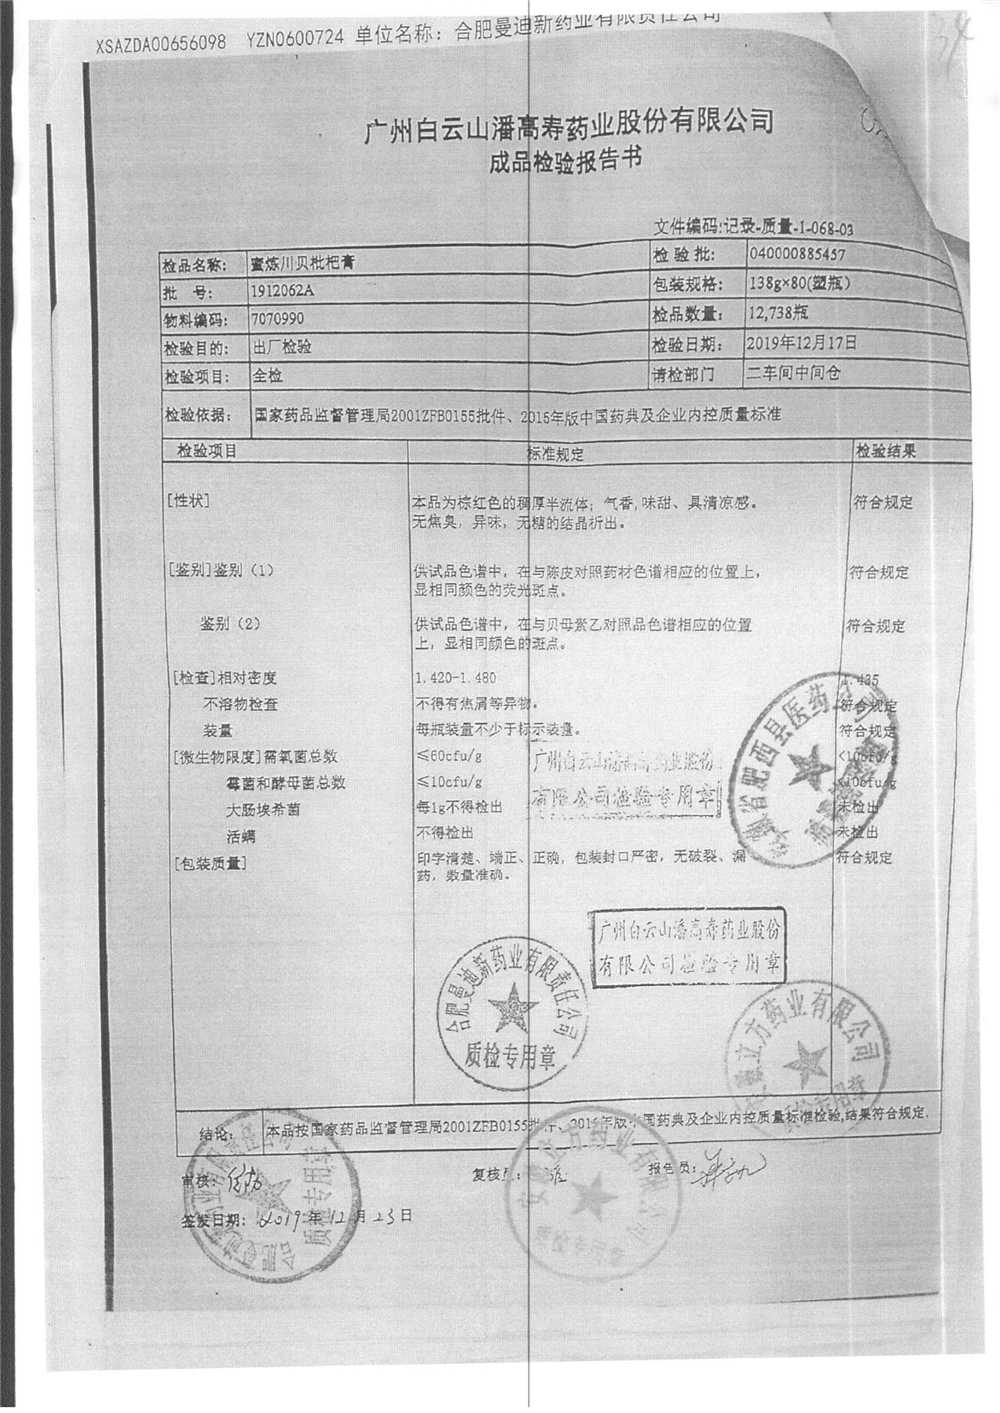 XSAZDA00656098 YZN0600724 单位名称：合肥曼迪新药业有限责任公司
广州白云山潘高寿药业股份有限公司
成品检验报告书
文件编码:记录-质量-1-068-03
检品名称: 蜜炼川贝枇杷膏 检 验 批: 040000885457
批 号: 1912062A 包装规格: 138g×80(塑瓶)
物料编码: 7070990 检品数量: 12,738瓶
检验目的: 出厂检验 检验日期: 2019年12月17日
检验项目: 全检 请检部门 二车间中间仓
检验依据: 国家药品监督管理局2001ZFB0155批件、2015年版中国药典及企业内控质量标准
检验项目 标准规定 检验结果
[性状] 本品为棕红色的稠厚半流体；气香,味甜、具清凉感。 符合规定
无焦臭，异味，无糖的结晶析出。
[鉴别]鉴别（1） 供试品色谱中，在与陈皮对照药材色谱相应的位置上， 符合规定
显相同颜色的荧光斑点。
鉴别（2） 供试品色谱中，在与贝母素乙对照品色谱相应的位置 符合规定
上，显相同颜色的斑点。
[检查]相对密度 1.420-1.480 1.435
不溶物检查 不得有焦屑等异物。 符合规定
装量 每瓶装量不少于标示装量。 符合规定
[微生物限度]需氧菌总数 ≤60cfu/g <10cfu/g
霉菌和酵母菌总数 ≤10cfu/g <10cfu/g
大肠埃希菌 每1g不得检出 未检出
活螨 不得检出 未检出
[包装质量] 印字清楚、端正、正确，包装封口严密，无破裂、漏 符合规定
药，数量准确。
广州白云山潘高寿药业股份
有限公司检验专用章
安徽省肥西县医药公司
广州白云山潘高寿药业股份
有限公司检验专用章
合肥曼迪新药业有限责任公司
质检专用章
安徽立方药业有限公司
质检专用章
结论: 本品按国家药品监督管理局2001ZFB0155批件、2015年版中国药典及企业内控质量标准检验,结果符合规定.
审核: 复核员: 报告员:
签发日期: 2019年12月23日
合肥曼迪新药业有限责任公司
质检专用章
安徽立方药业有限公司
质检专用章